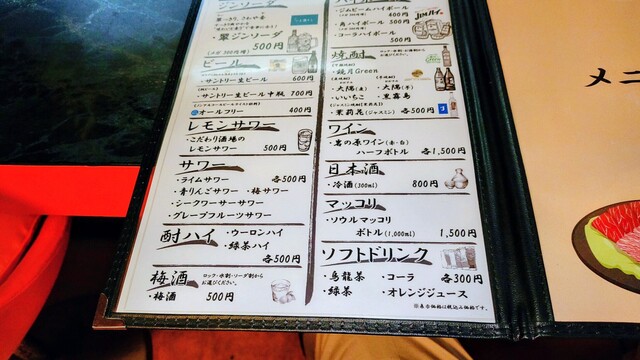 ジンソーダ
・翠ジンソーダ
(メガ 300円増)
500円
ビール
・サントリー生ビール 600円
・サントリー生ビール中瓶 700円
・オールフリー 400円
レモンサワー
・こだわり酒場の
レモンサワー 500円
サワー 各500円
・ライムサワー
・青りんごサワー ・梅サワー
・シークワーサーサワー
・グレープフルーツサワー
酎ハイ ・ウーロンハイ
・緑茶ハイ
各500円
梅酒 ロック・水割・ソーダ割から
お選びください。
・梅酒 500円
・ジムビームハイボール
400円
・角ハイボール 500円
・コーラハイボール
500円
焼酎 ロック・水割・お湯割から
お選びください。
・鏡月Green
・大隅(麦) ・大隅(芋)
・いいちこ ・黒霧島
・茉莉花(ジャスミン) 各500円
ワイン
・岩の原ワイン(赤・白)
ハーフボトル 各1,500円
日本酒
・冷酒(300ml) 800円
マッコリ
・ソウルマッコリ
ボトル(1,000ml) 1,500円
ソフトドリンク
・烏龍茶 ・コーラ 各300円
・緑茶 ・オレンジジュース
※表示価格は税込み価格です。
メニ